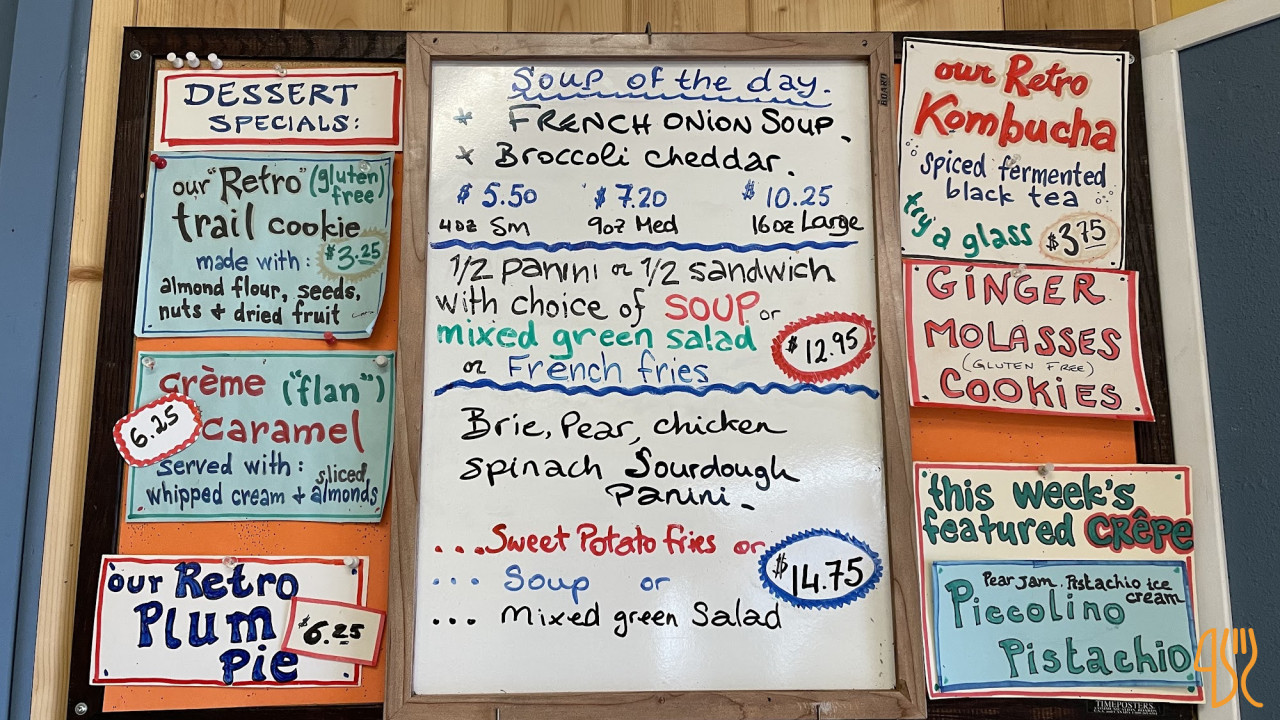 DESSERT
SPECIALS:
our "Retro" (gluten free)
trail cookie
made with: $3.25
almond flour, seeds,
nuts + dried fruit
crème ("flan")
6.25 caramel
served with: sliced
whipped cream + almonds
our Retro
Plum
Pie
$6.25
Soup of the day.
* FRENCH ONION SOUP.
* Broccoli cheddar.
$5.50 $7.20 $10.25
4oz Sm 9oz Med 16oz Large
1/2 panini or 1/2 sandwich
with choice of SOUP or
mixed green salad
or French fries
$12.95
Brie, Pear, chicken
spinach Sourdough
Panini.
...Sweet Potato fries or
... Soup or
... Mixed green Salad
$14.75
BOARD
our Retro
Kombucha
spiced fermented
black tea
try a glass $3.75
GINGER
MOLASSES
(GLUTEN FREE)
COOKIES
this week's
featured CRÊPE
Pear Jam. Pistachio ice
cream
Piccolino
Pistachio
TIMEPOSTERS